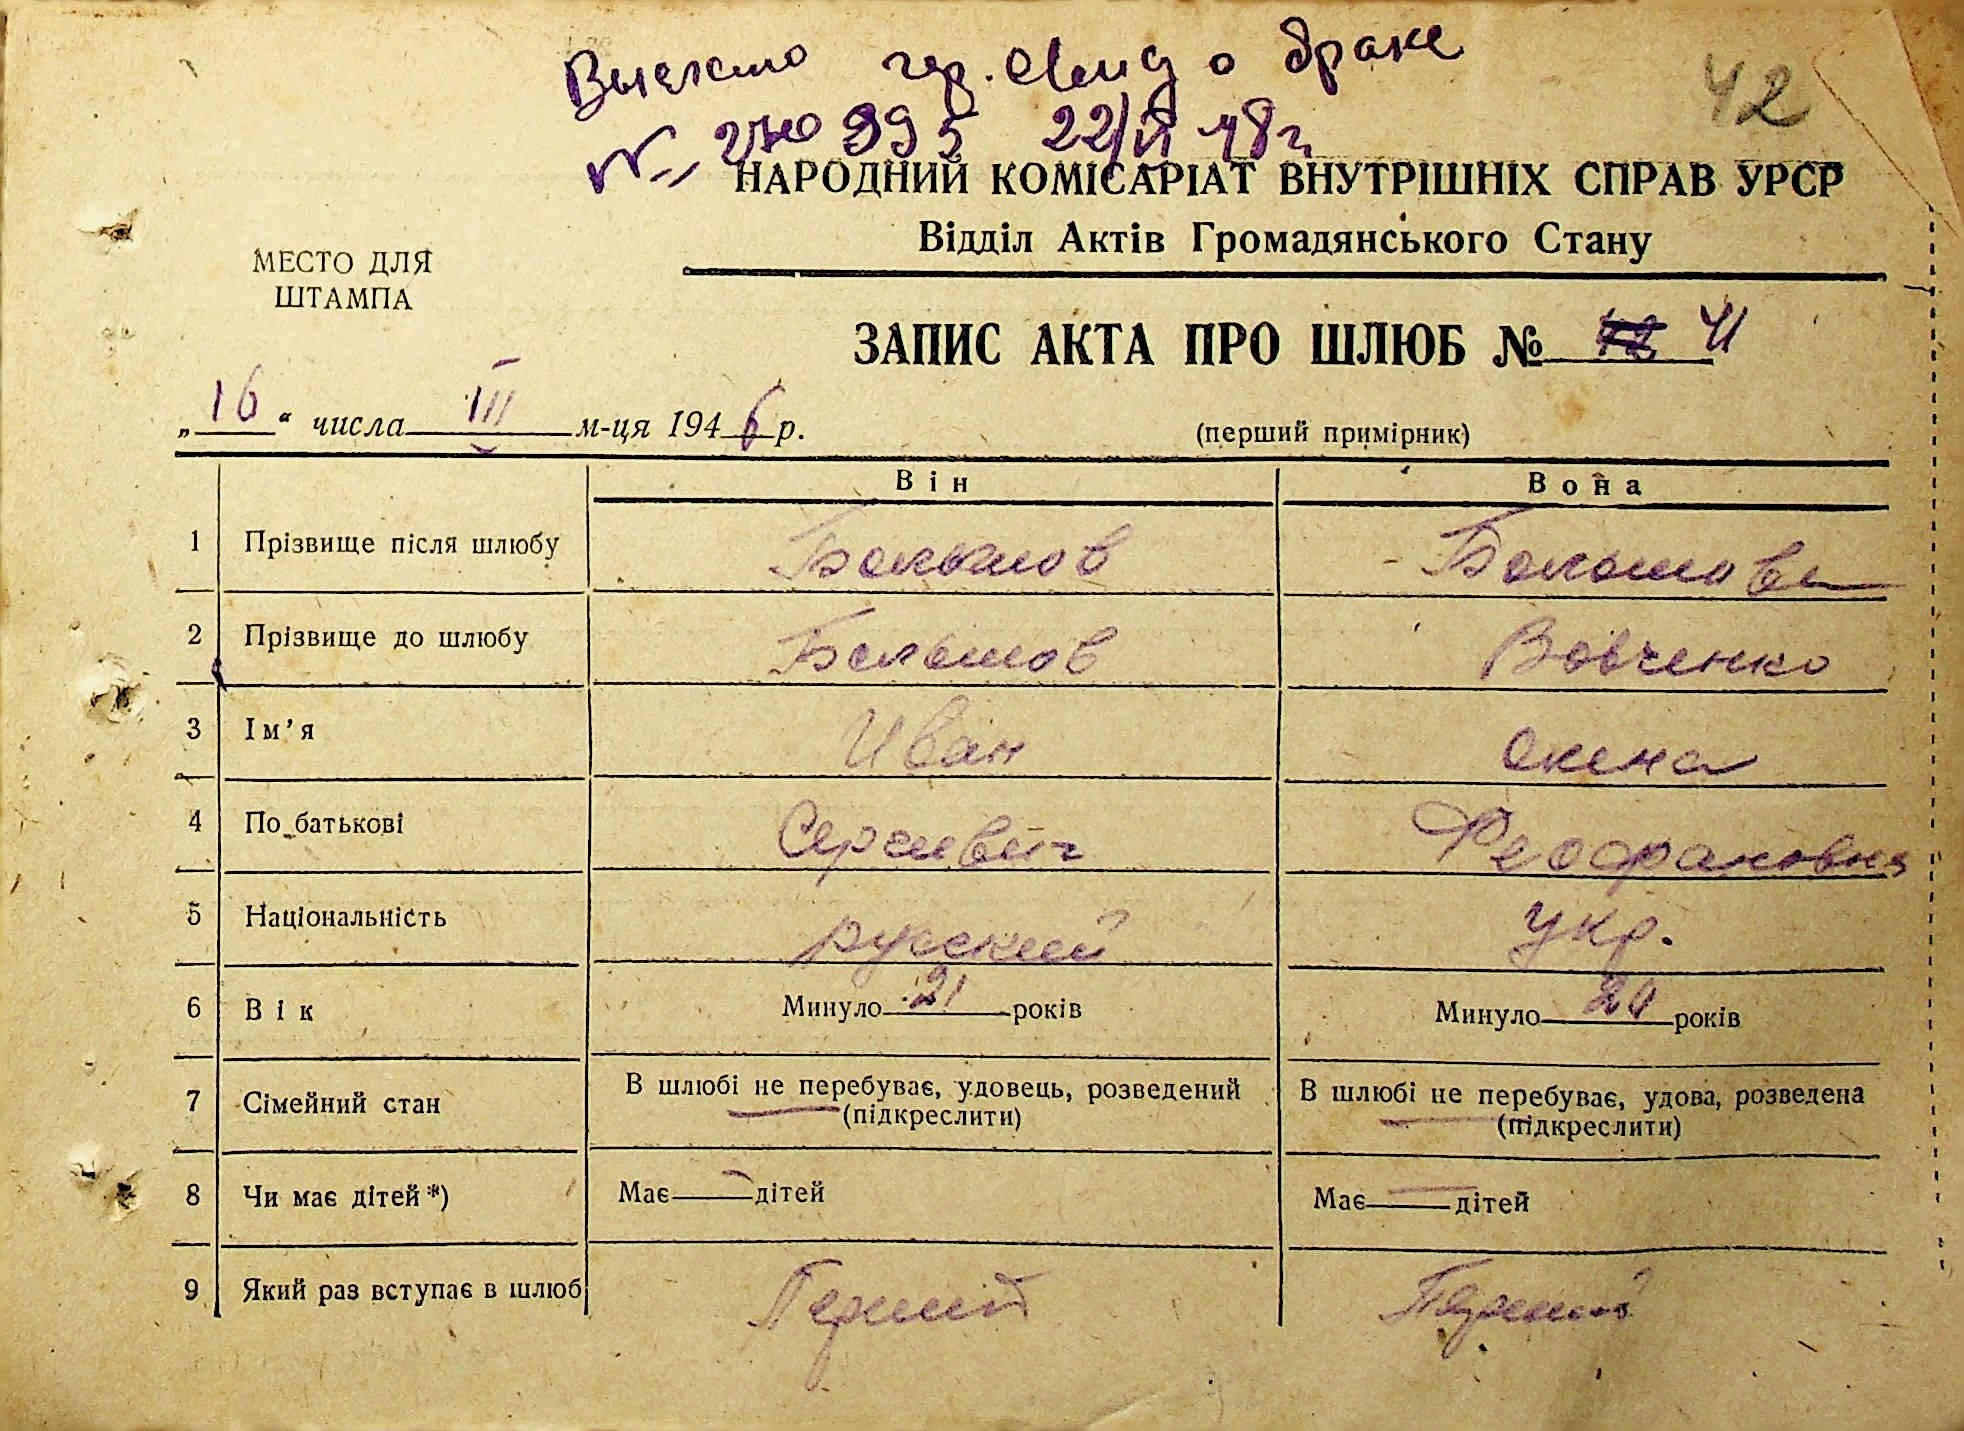 о браке
22/VI 48 г
42
НАРОДНИЙ КОМІСАРІАТ ВНУТРІШНІХ СПРАВ УРСР
Відділ Актів Громадянського Стану
МЕСТО ДЛЯ
ШТАМПА
ЗАПИС АКТА ПРО ШЛЮБ № 41
„16“ числа III м-ця 1946 р.
(перший примірник)
Він Вона
1 Прізвище після шлюбу
2 Прізвище до шлюбу Вовченко
3 Ім’я Иван
4 По батькові Сергеевич Феофановна
5 Національність русский укр.
6 Вік Минуло 21 років Минуло років
7 Сімейний стан В шлюбі не перебуває, удовець, розведений В шлюбі не перебуває, удова, розведена
(підкреслити) (підкреслити)
8 Чи має дітей*) Має — дітей Має — дітей
9 Який раз вступає в шлюб Перший Перший